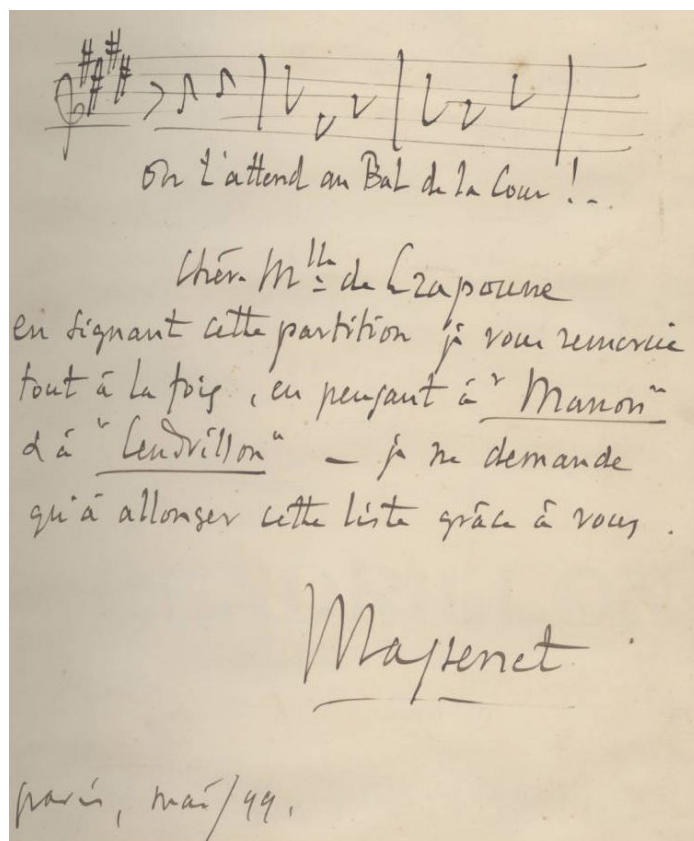 on l'attend au Bal de la Cour !..
Chère Mlle de Craponne
en signant cette partition je vous remercie
tout à la fois, en pensant à "Manon"
& à "Cendrillon" — je ne demande
qu'à allonger cette liste grâce à vous.
Massenet
Paris, mai/99.